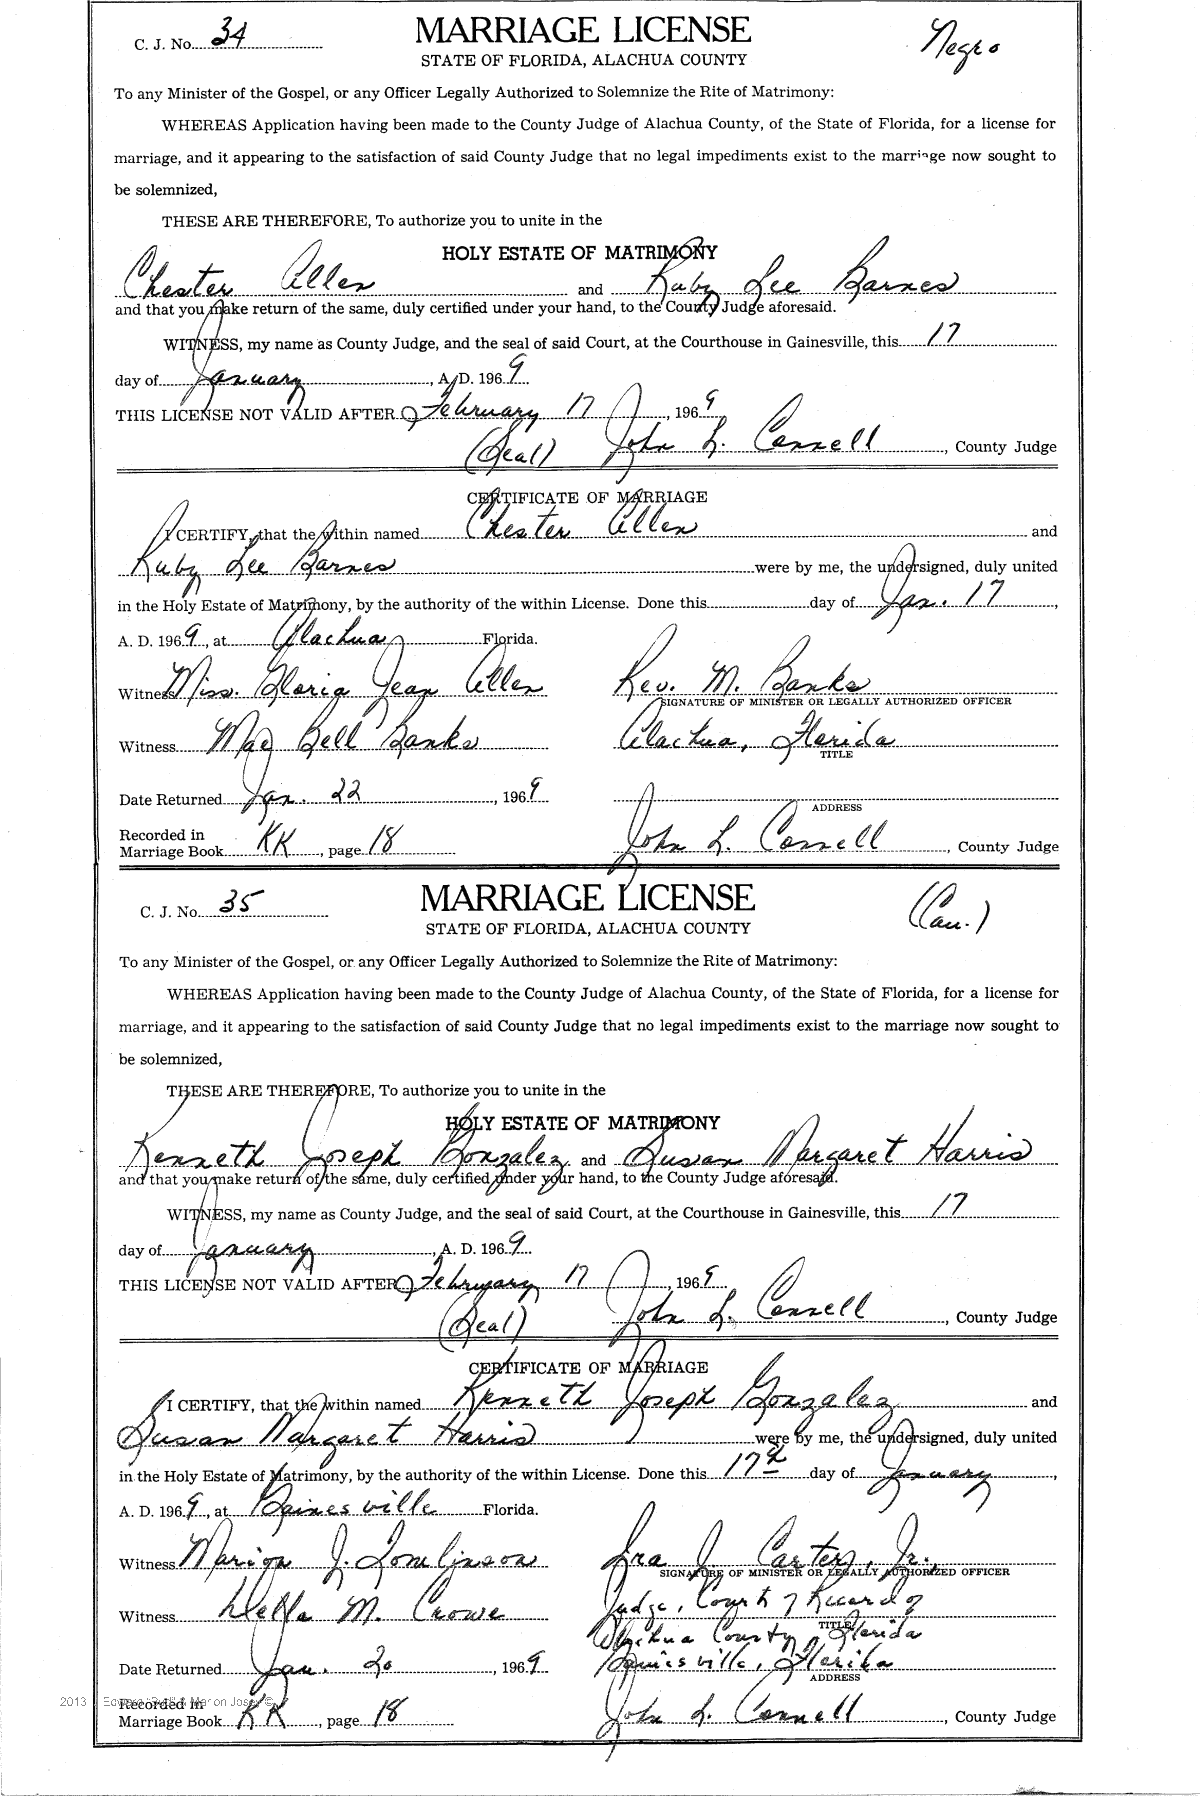 C. J. No. 34 MARRIAGE LICENSE Negro
STATE OF FLORIDA, ALACHUA COUNTY
To any Minister of the Gospel, or any Officer Legally Authorized to Solemnize the Rite of Matrimony:
WHEREAS Application having been made to the County Judge of Alachua County, of the State of Florida, for a license for
marriage, and it appearing to the satisfaction of said County Judge that no legal impediments exist to the marriage now sought to
be solemnized,
THESE ARE THEREFORE, To authorize you to unite in the
HOLY ESTATE OF MATRIMONY
Chester Allen and Ruby Lee Barnes
and that you make return of the same, duly certified under your hand, to the County Judge aforesaid.
WITNESS, my name as County Judge, and the seal of said Court, at the Courthouse in Gainesville, this 17
day of January, A. D. 1969
THIS LICENSE NOT VALID AFTER February 17, 1969
(Seal) John L. Connell, County Judge
CERTIFICATE OF MARRIAGE
I CERTIFY, that the within named Chester Allen and
Ruby Lee Barnes were by me, the undersigned, duly united
in the Holy Estate of Matrimony, by the authority of the within License. Done this day of Jan. 17,
A. D. 1969, at Alachua Florida.
Witness Miss. Gloria Jean Allen Rev. M. Banks
SIGNATURE OF MINISTER OR LEGALLY AUTHORIZED OFFICER
Witness Mae Bell Banks Alachua, Florida
TITLE
Date Returned Jan. 22, 1969
ADDRESS
Recorded in
Marriage Book KK, page 18 John L. Connell, County Judge
C. J. No. 35 MARRIAGE LICENSE (Cau.)
STATE OF FLORIDA, ALACHUA COUNTY
To any Minister of the Gospel, or any Officer Legally Authorized to Solemnize the Rite of Matrimony:
WHEREAS Application having been made to the County Judge of Alachua County, of the State of Florida, for a license for
marriage, and it appearing to the satisfaction of said County Judge that no legal impediments exist to the marriage now sought to
be solemnized,
THESE ARE THEREFORE, To authorize you to unite in the
HOLY ESTATE OF MATRIMONY
Kenneth Joseph Gonzalez and Susan Margaret Harris
and that you make return of the same, duly certified under your hand, to the County Judge aforesaid.
WITNESS, my name as County Judge, and the seal of said Court, at the Courthouse in Gainesville, this 17
day of January, A. D. 1969
THIS LICENSE NOT VALID AFTER February 17, 1969
(Seal) John L. Connell, County Judge
CERTIFICATE OF MARRIAGE
I CERTIFY, that the within named Kenneth Joseph Gonzalez and
Susan Margaret Harris were by me, the undersigned, duly united
in the Holy Estate of Matrimony, by the authority of the within License. Done this 17th day of January,
A. D. 1969, at Gainesville Florida.
Witness Marion J. Tomlinson Ira J. Carter, Jr.
SIGNATURE OF MINISTER OR LEGALLY AUTHORIZED OFFICER
Witness Della M. Crowe Judge, Court of Record of
TITLE
Alachua County, Florida
Date Returned Jan. 20, 1969 Gainesville, Florida
ADDRESS
2013
Recorded in
Marriage Book KK, page 18 John L. Connell, County Judge